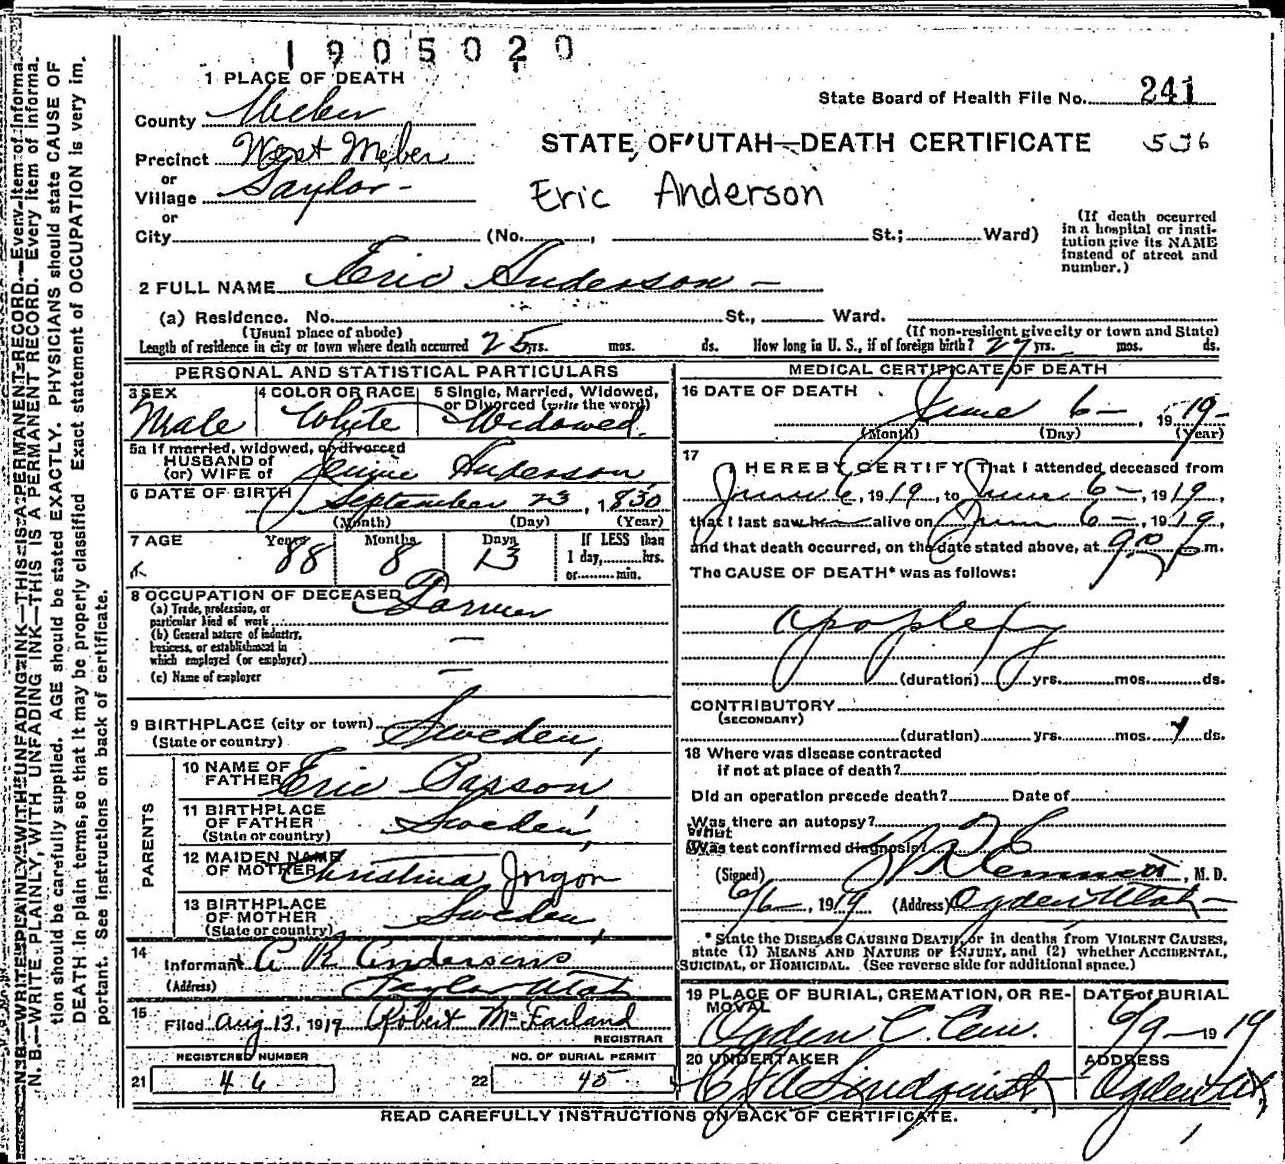 1905020
1 PLACE OF DEATH
County Weber
State Board of Health File No. 241
Precinct West Weber
STATE OF UTAH—DEATH CERTIFICATE
or
Village Taylor -
Eric Anderson
or
City (No. , St.; Ward)
(If death occurred in a hospital or institution give its NAME instead of street and number.)
2 FULL NAME Eric Anderson -
(a) Residence. No. St., Ward.
(Usual place of abode) (If non-resident give city or town and State)
Length of residence in city or town where death occurred 25 yrs. mos. ds. How long in U. S., if of foreign birth? 27 yrs. mos. ds.
PERSONAL AND STATISTICAL PARTICULARS
3 SEX Male
4 COLOR OR RACE White
5 Single, Married, Widowed, or Divorced (write the word) Widowed.
5a If married, widowed, or divorced
HUSBAND of
(or) WIFE of Jennie Anderson
6 DATE OF BIRTH September 23, 1830
(Month) (Day) (Year)
7 AGE Years 88 Months 8 Days 13 If LESS than
1 day, hrs.
or min.
8 OCCUPATION OF DECEASED Farmer
(a) Trade, profession, or
particular kind of work
(b) General nature of industry,
business, or establishment in
which employed (or employer) —
(c) Name of employer —
9 BIRTHPLACE (city or town)
(State or country) Sweden,
PARENTS
10 NAME OF FATHER Eric Parson
11 BIRTHPLACE OF FATHER
(State or country) Sweden,
12 MAIDEN NAME OF MOTHER Christina Jorgon
13 BIRTHPLACE OF MOTHER
(State or country) Sweden,
14
Informant A R Anderson
(Address) Taylor Utah
15
Filed Aug 13, 1919 Robert McFarland
REGISTRAR
REGISTERED NUMBER
21 46
NO. OF BURIAL PERMIT
22 45
MEDICAL CERTIFICATE OF DEATH
16 DATE OF DEATH
June 6 - , 1919 -
(Month) (Day) (Year)
17
I HEREBY CERTIFY, That I attended deceased from
June 6, 1919, to June 6 -, 1919,
that I last saw h alive on June 6 -, 1919,
and that death occurred, on the date stated above, at m.
The CAUSE OF DEATH* was as follows:
Apoplexy
(duration) yrs. mos. ds.
CONTRIBUTORY
(SECONDARY)
(duration) yrs. mos. ds.
18 Where was disease contracted
if not at place of death?
Did an operation precede death? Date of
Was there an autopsy?
What
Was test confirmed diagnosis?
(Signed) , M. D.
6/6, 1919 (Address) Ogden Utah -
* State the DISEASE CAUSING DEATH, or in deaths from VIOLENT CAUSES,
state (1) MEANS AND NATURE OF INJURY, and (2) whether ACCIDENTAL,
SUICIDAL, or HOMICIDAL. (See reverse side for additional space.)
19 PLACE OF BURIAL, CREMATION, OR REMOVAL
Ogden C. Cem.
DATE of BURIAL
6/9 - 1919
20 UNDERTAKER
Lindquist
ADDRESS
Ogden Ut,
READ CAREFULLY INSTRUCTIONS ON BACK OF CERTIFICATE.
N. B.—WRITE PLAINLY, WITH UNFADING INK—THIS IS A PERMANENT RECORD. Every item of informa-
tion should be carefully supplied. AGE should be stated EXACTLY. PHYSICIANS should state CAUSE OF
DEATH in plain terms, so that it may be properly classified. Exact statement of OCCUPATION is very im-
portant. See instructions on back of certificate.